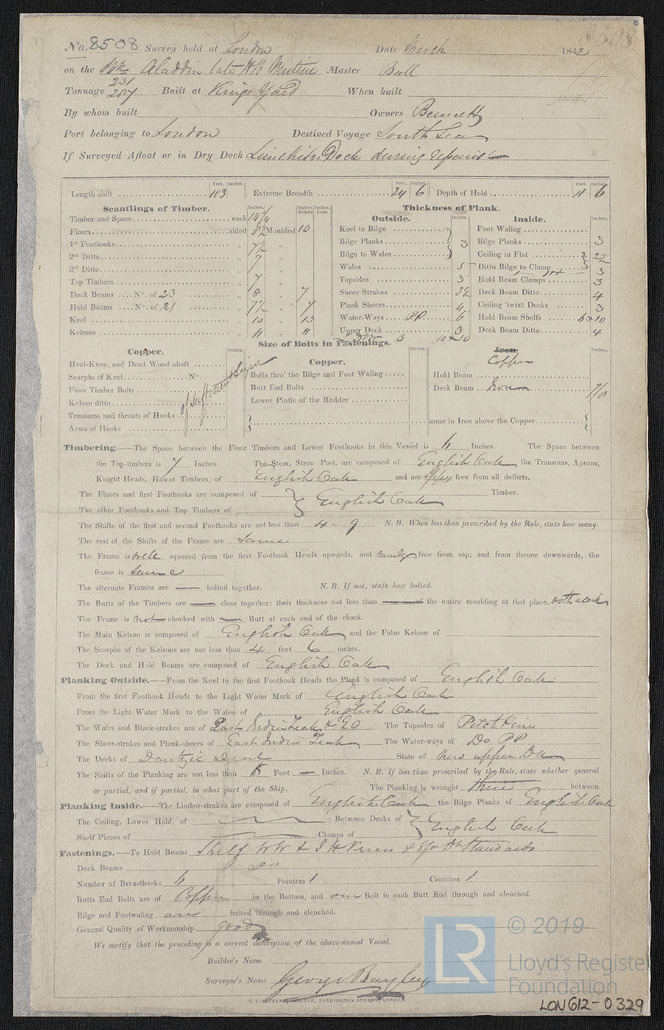 No. 8508 Survey held at London Date March 1842
on the Bk Aladdin late HB Mutine Master Bull
Tonnage 231 287 Built at Kings Yard When built
By whom built Owners Bennett
Port belonging to London Destined Voyage South Sea
If Surveyed Afloat or in Dry Dock Limekiln Dock during repairs
Length aloft 103 Feet. Inches. Extreme Breadth 24 6 Feet. Inches. Depth of Hold 11 6 Feet. Inches.
Scantlings of Timber. Thickness of Plank.
Outside. Inside.
Timber and Space each Keel to Bilge Foot Waling
Floors sided Moulded 10 Bilge Planks 3 Bilge Planks 3
1st Foothooks 7½ Bilge to Wales Ceiling in Flat 2½
2nd Ditto 7 Wales 5 Ditto Bilge to Clamp 3
3rd Ditto Topsides 3 Hold Beam Clamps 3
Top Timbers 7 Sheer Strakes 3½ Deck Beam Ditto 4
Deck Beams No. of 23 8 7 Plank Sheers 4 Ceiling 'twixt Decks 3
Hold Beams No. of 21 7½ 7 Water-Ways PP 6 Hold Beam Shelfs 6 x 10
Keel 10 13 Upper Deck 3 Deck Beam Ditto 4
Kelsons 11 11
Size of Bolts in Fastenings.
Copper. Copper. Iron Copper
Heel-Knee, and Dead Wood abaft Bolts thro' the Bilge and Foot Waling Hold Beam
Scarphs of Keel No. Butt End Bolts Deck Beam Iron 7/8
Floor Timber Bolts Lower Pintle of the Rudder
Kelson ditto of sufficient size
Transoms and throats of Hooks same in Iron above the Copper
Arms of Hooks
Timbering.—The Space between the Floor Timbers and Lower Foothooks in this Vessel is 6 Inches. The Space between
the Top-timbers is 7 Inches. The Stem, Stern Post, are composed of English Oak the Transoms, Aprons,
Knight Heads, Hawse Timbers, of English Oak and are free from all defects.
The Floors and first Foothooks are composed of English Oak Timber.
The other Foothooks and Top Timbers of
The Shifts of the first and second Foothooks are not less than 4 - 9 N. B. When less than prescribed by the Rule, state how many.
The rest of the Shifts of the Frame are Same
The Frame is well squared from the first Foothook Heads upwards, and mostly free from sap, and from thence downwards, the
frame is same
The alternate Frames are — bolted together. N. B. If not, state how bolted.
The Butts of the Timbers are — close together; their thickness not less than — of the entire moulding at that place,
The Frame is not chocked with — Butt at each end of the chock.
The Main Kelson is composed of English Oak and the False Kelson of
The Scarphs of the Kelsons are not less than 4 feet 6 inches.
The Deck and Hold Beams are composed of English Oak
Planking Outside.—From the Keel to the first Foothook Heads the Plank is composed of English Oak
From the first Foothook Heads to the Light Water Mark of English Oak
From the Light Water Mark to the Wales of English Oak
The Wales and Black-strakes are of East India Teak & EO The Topsides of Pitch Pine
The Sheer-strakes and Plank-sheers of East India Teak The Water-ways of Do PP
The Decks of Dantzic Deal State of new upper Dk
The Shifts of the Planking are not less than 5 Feet — Inches. N. B. If less than prescribed by the Rule, state whether general
or partial, and if partial, in what part of the Ship. The Planking is wrought three between
Planking Inside.—The Limber-strakes are composed of English Oak the Bilge Planks of English Oak
The Ceiling, Lower Hold, of Between Decks of English Oak
Shelf Pieces of Clamps of
Fastenings.—To Hold Beams Shelf WW & I H Knees & Spr Standards
Deck Beams Do
Number of Breasthooks 6 Pointers 1 Crutches 1
Butts End Bolts are of Copper in the Bottom, and one Bolt in each Butt End through and clenched.
Bilge and Footwaling are bolted through and clenched.
General Quality of Workmanship good
We certify that the preceding is a correct description of the above-named Vessel.
Builder's Name
Surveyor's Name George Bayley
LR © 2019
Lloyd's Register
Foundation
LON612-0329